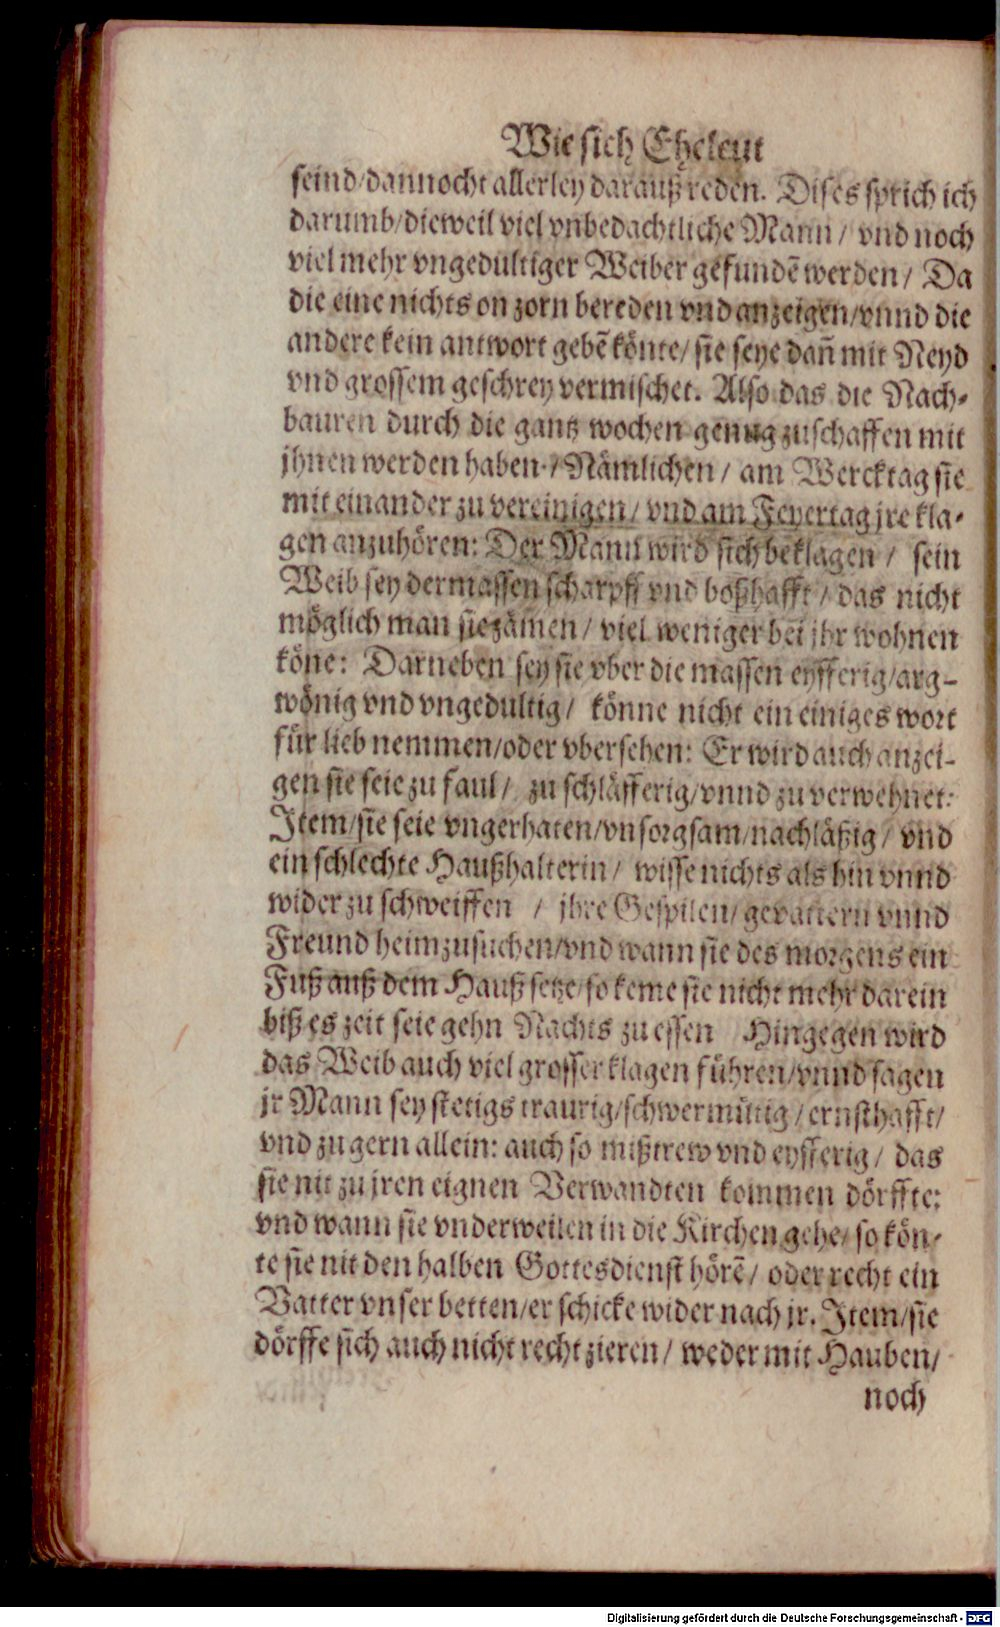 Wie sich Eheleut
seind/dannocht allerley darauß reden. Dises sprich ich
darumb/dieweil viel vnbedachtliche Mann/ vnd noch
viel mehr vngedultiger Weiber gefundē werden/ Da
die eine nichts on zorn bereden vnd anzeigen/vnnd die
andere kein antwort gebē könte/ sie seye dañ mit Neyd
vnd grossem geschrey vermischet. Also das die Nach-
bauren durch die gantz wochen genug zuschaffen mit
jhnen werden haben/ Nämlichen/ am Wercktag sie
mit einander zu vereinigen/ vnd am Feyertag jre kla-
gen anzuhören: Der Mann wird sich beklagen/ sein
Weib sey dermassen scharpff vnd boßhafft/ das nicht
möglich man sie zämen/ viel weniger bei jhr wohnen
köne: Darneben sey sie vber die massen eyfferig/arg-
wönig vnd vngedultig/ könne nicht ein einiges wort
für lieb nemmen/oder vbersehen: Er wird auch anzei-
gen sie seie zu faul/ zu schläfferig/vnnd zu verwehnet:
Item/sie seie vngerhaten/vnsorgsam/nachläßig/ vnd
ein schlechte Haußhalterin/ wisse nichts als hin vnnd
wider zu schweiffen / jhre Gespilen/gevattern vnnd
Freund heimzusuchen/vnd wann sie des morgens ein
Fuß auß dem Hauß setze/so keme sie nicht mehr darein
biß es zeit seie gehn Nachts zu essen Hingegen wird
das Weib auch viel grosser klagen führen/vnnd sagen
jr Mann sey stetigs traurig/schwermütig/ernsthafft/
vnd zu gern allein: auch so mißtrew vnd eysferig/ das
sie nit zu jren eignen Verwandten kommen dörffte:
vnd wann sie vnderweilen in die Kirchen gehe/ so kön-
te sie nit den halben Gottesdienst hörē/ oder recht ein
Vatter vnser betten/er schicke wider nach jr. Item/sie
dörffe sich auch nicht recht zieren/ weder mit Hauben/
noch
Digitalisierung gefördert durch die Deutsche Forschungsgemeinschaft - DFG